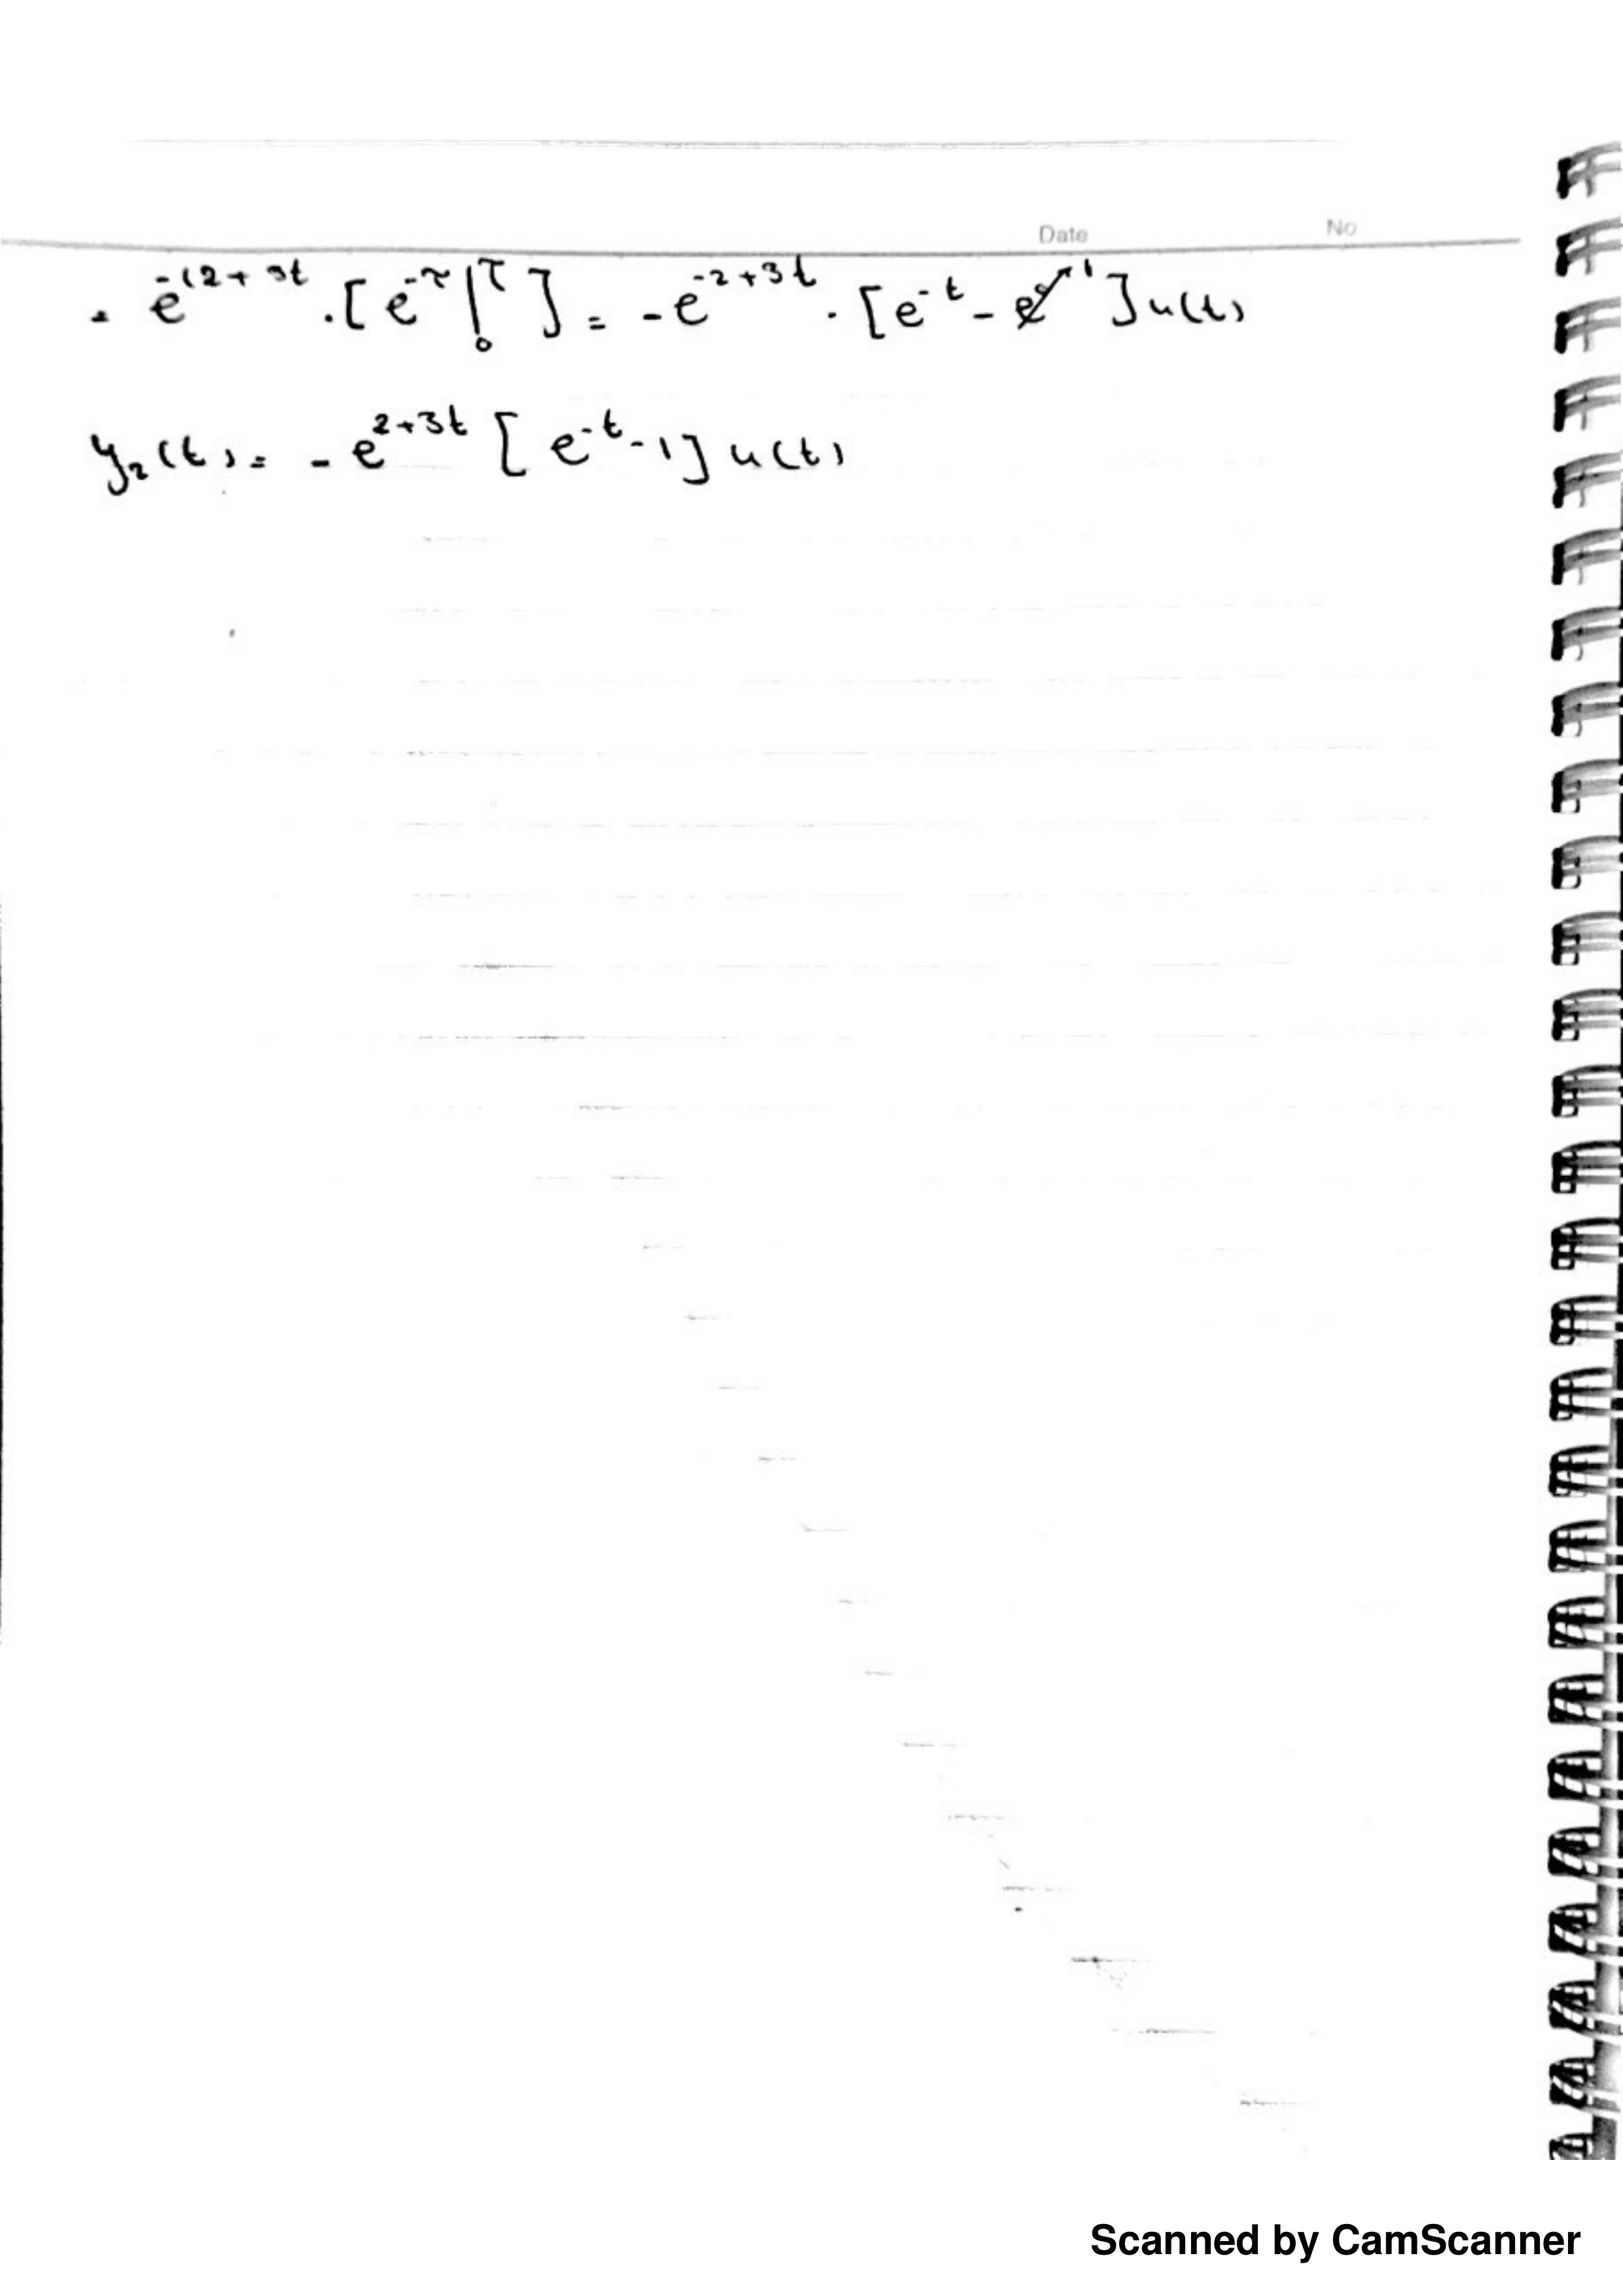 Date No
= e^{-(2+3t} . [e^{-τ} |_0^τ ] = - e^{-2+3t} . [e^{-t} - e^{0}↗1 ] u(t)
y_2(t) = - e^{2+3t} [ e^{-t} - 1] u(t)
Scanned by CamScanner